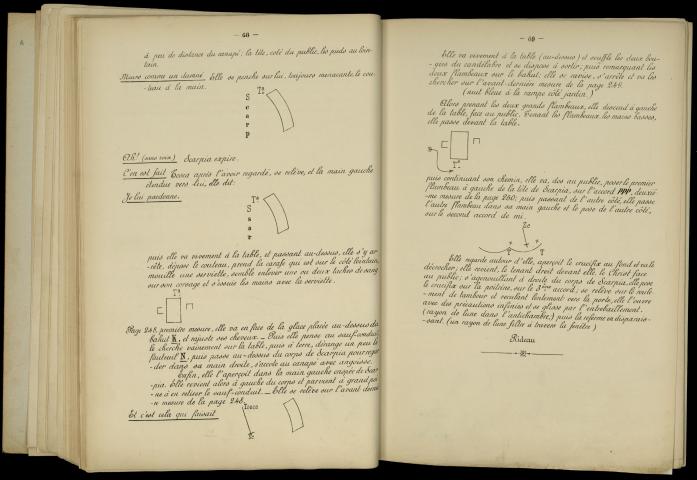 — 68 —
à peu de distance du canapé; la tête, coté du public, les pieds au loin-
tain.
Meurs comme un damné Elle se penche sur lui, toujours menacante, le cou-
-teau à la main.
Ta
S
c
a
r
p
Ah! (sans voix) Scarpia expire.
C'en est fait Tosca après l'avoir regardé, se relève, et la main gauche
étendue vers lui, elle dit:
Je lui pardonne.
Ta
S
c
a
r
puis elle va vivement à la table, et passant au-dessus, elle s'y ar-
-rête, dépose le couteau, prend la carafe qui est sur le côté lointain,
mouille une serviette, semble enlever une ou deux taches de sang
sur son corsage et s'essuie les mains avec la serviette.
Ta
Page 248, première mesure, elle va en face de la glace placée au-dessus du
bahut K, et rajuste ses cheveux. — Puis elle pense au sauf-conduit
le cherche vainement sur la table, puis à terre, dérange un peu le
fauteuil N, puis passe au-dessus du corps de Scarpia pour regar-
-der dans sa main droite, s'accole au canapé avec angoisse.
Enfin, elle l'aperçoit dans la main gauche crispée de Scar-
-pia. Elle revient alors à gauche du corps et parvient à grand pei-
-ne à en retirer le sauf-conduit. — Elle se relève sur l'avant derniè-
-re mesure de la page 248.
Et c'est cela qui faisait
Tosca
Sc
— 69 —
Elle va vivement à la table (au-dessus) et souffle les deux bou-
-gies du candélabre et se dispose à sortir; puis remarquant les
deux flambeaux sur le bahut, elle se ravise, s'arrête et va les
chercher sur l'avant-dernière mesure de la page 249.
(nuit bleue à la rampe côté jardin.)
Alors prenant les deux grands flambeaux, elle descend à gauche
de la table, face au public. Tenant les flambeaux les mains basses,
elle passe devant la table.
Ta
puis continuant son chemin, elle va, dos au public, poser le premier
flambeau à gauche de la tête de Scarpia, sur l'accord ppp, deuxiè-
-me mesure de la page 250; puis passant de l'autre côté, elle passe
l'autre flambeau dans sa main gauche et le pose de l'autre côté,
sur le second accord de mi.
Sc
T
T
Elle regarde autour d'elle, aperçoit le crucifix au fond et va le
décrocher; elle revient, le tenant droit devant elle, le Christ face
au public; s'agenouillant à droite du corps de Scarpia, elle pose
le crucifix sur la poitrine, sur le 3ème accord; se relève sur le roule-
-ment de tambour et reculant lentement vers la porte, elle l'ouvre
avec des précautions infinies et se glisse par l'entrebaillement.
(rayon de lune dans l'antichambre,) puis la referme en disparais-
-sant. (un rayon de lune filtre à travers la fenêtre)
Rideau